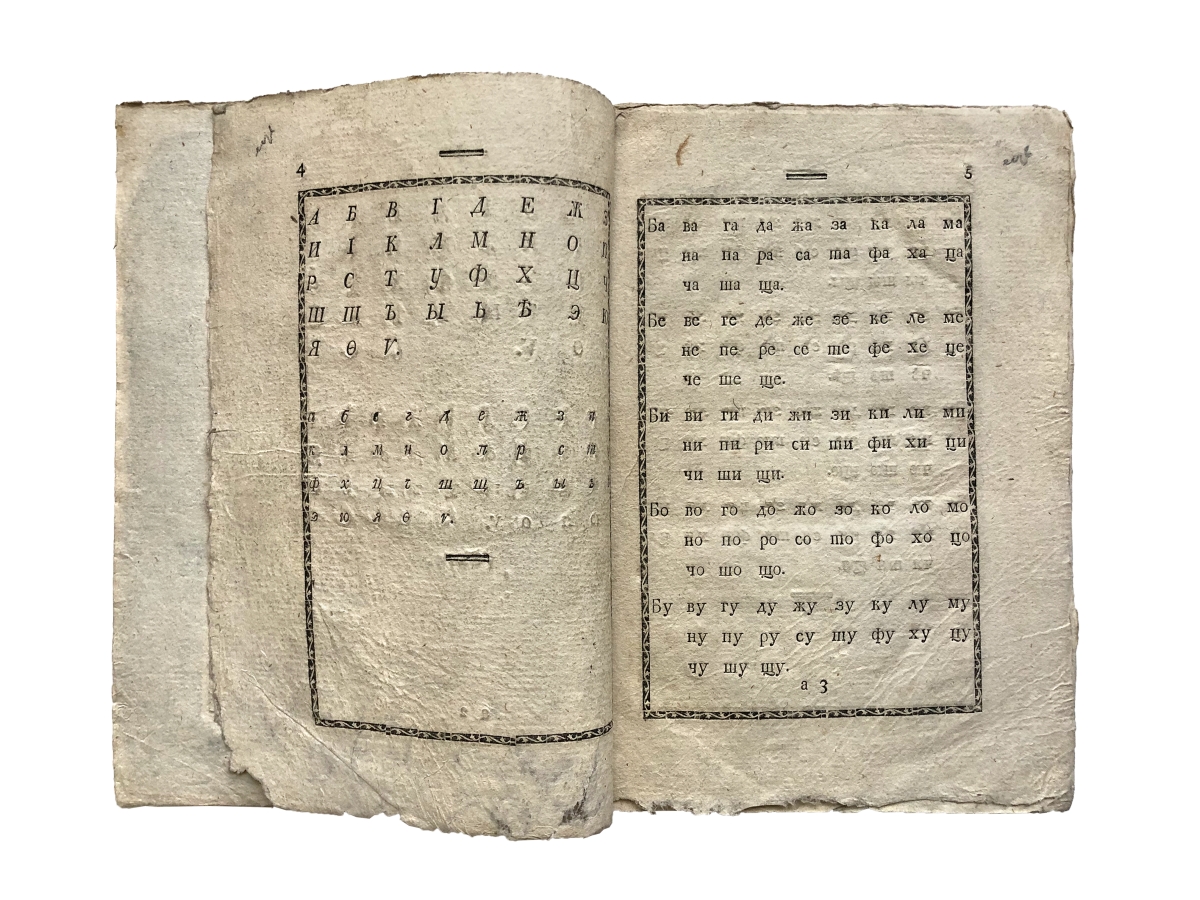 4
А Б В Г Д Е Ж З
И І К Л М Н О П
Р С Т У Ф Х Ц Ч
Ш Щ Ъ Ы Ь Ѣ Э
Я Ѳ Ѵ.
а б в г д е ж з и
к л м н о п р с т
ф х ц ч ш щ ъ ы ь
э ю я ѳ ѵ.
5
Ба ва га да жа за ка ла ма
на па ра са та фа ха ца
ча ша ща.
Бе ве ге де же зе ке ле ме
не пе ре се те фе хе це
че ше ще.
Би ви ги ди жи зи ки ли ми
ни пи ри си ти фи хи ци
чи ши щи.
Бо во го до жо зо ко ло мо
но по ро со то фо хо цо
чо шо що.
Бу ву гу ду жу зу ку лу му
ну пу ру су ту фу ху цу
чу шу щу.
а 3